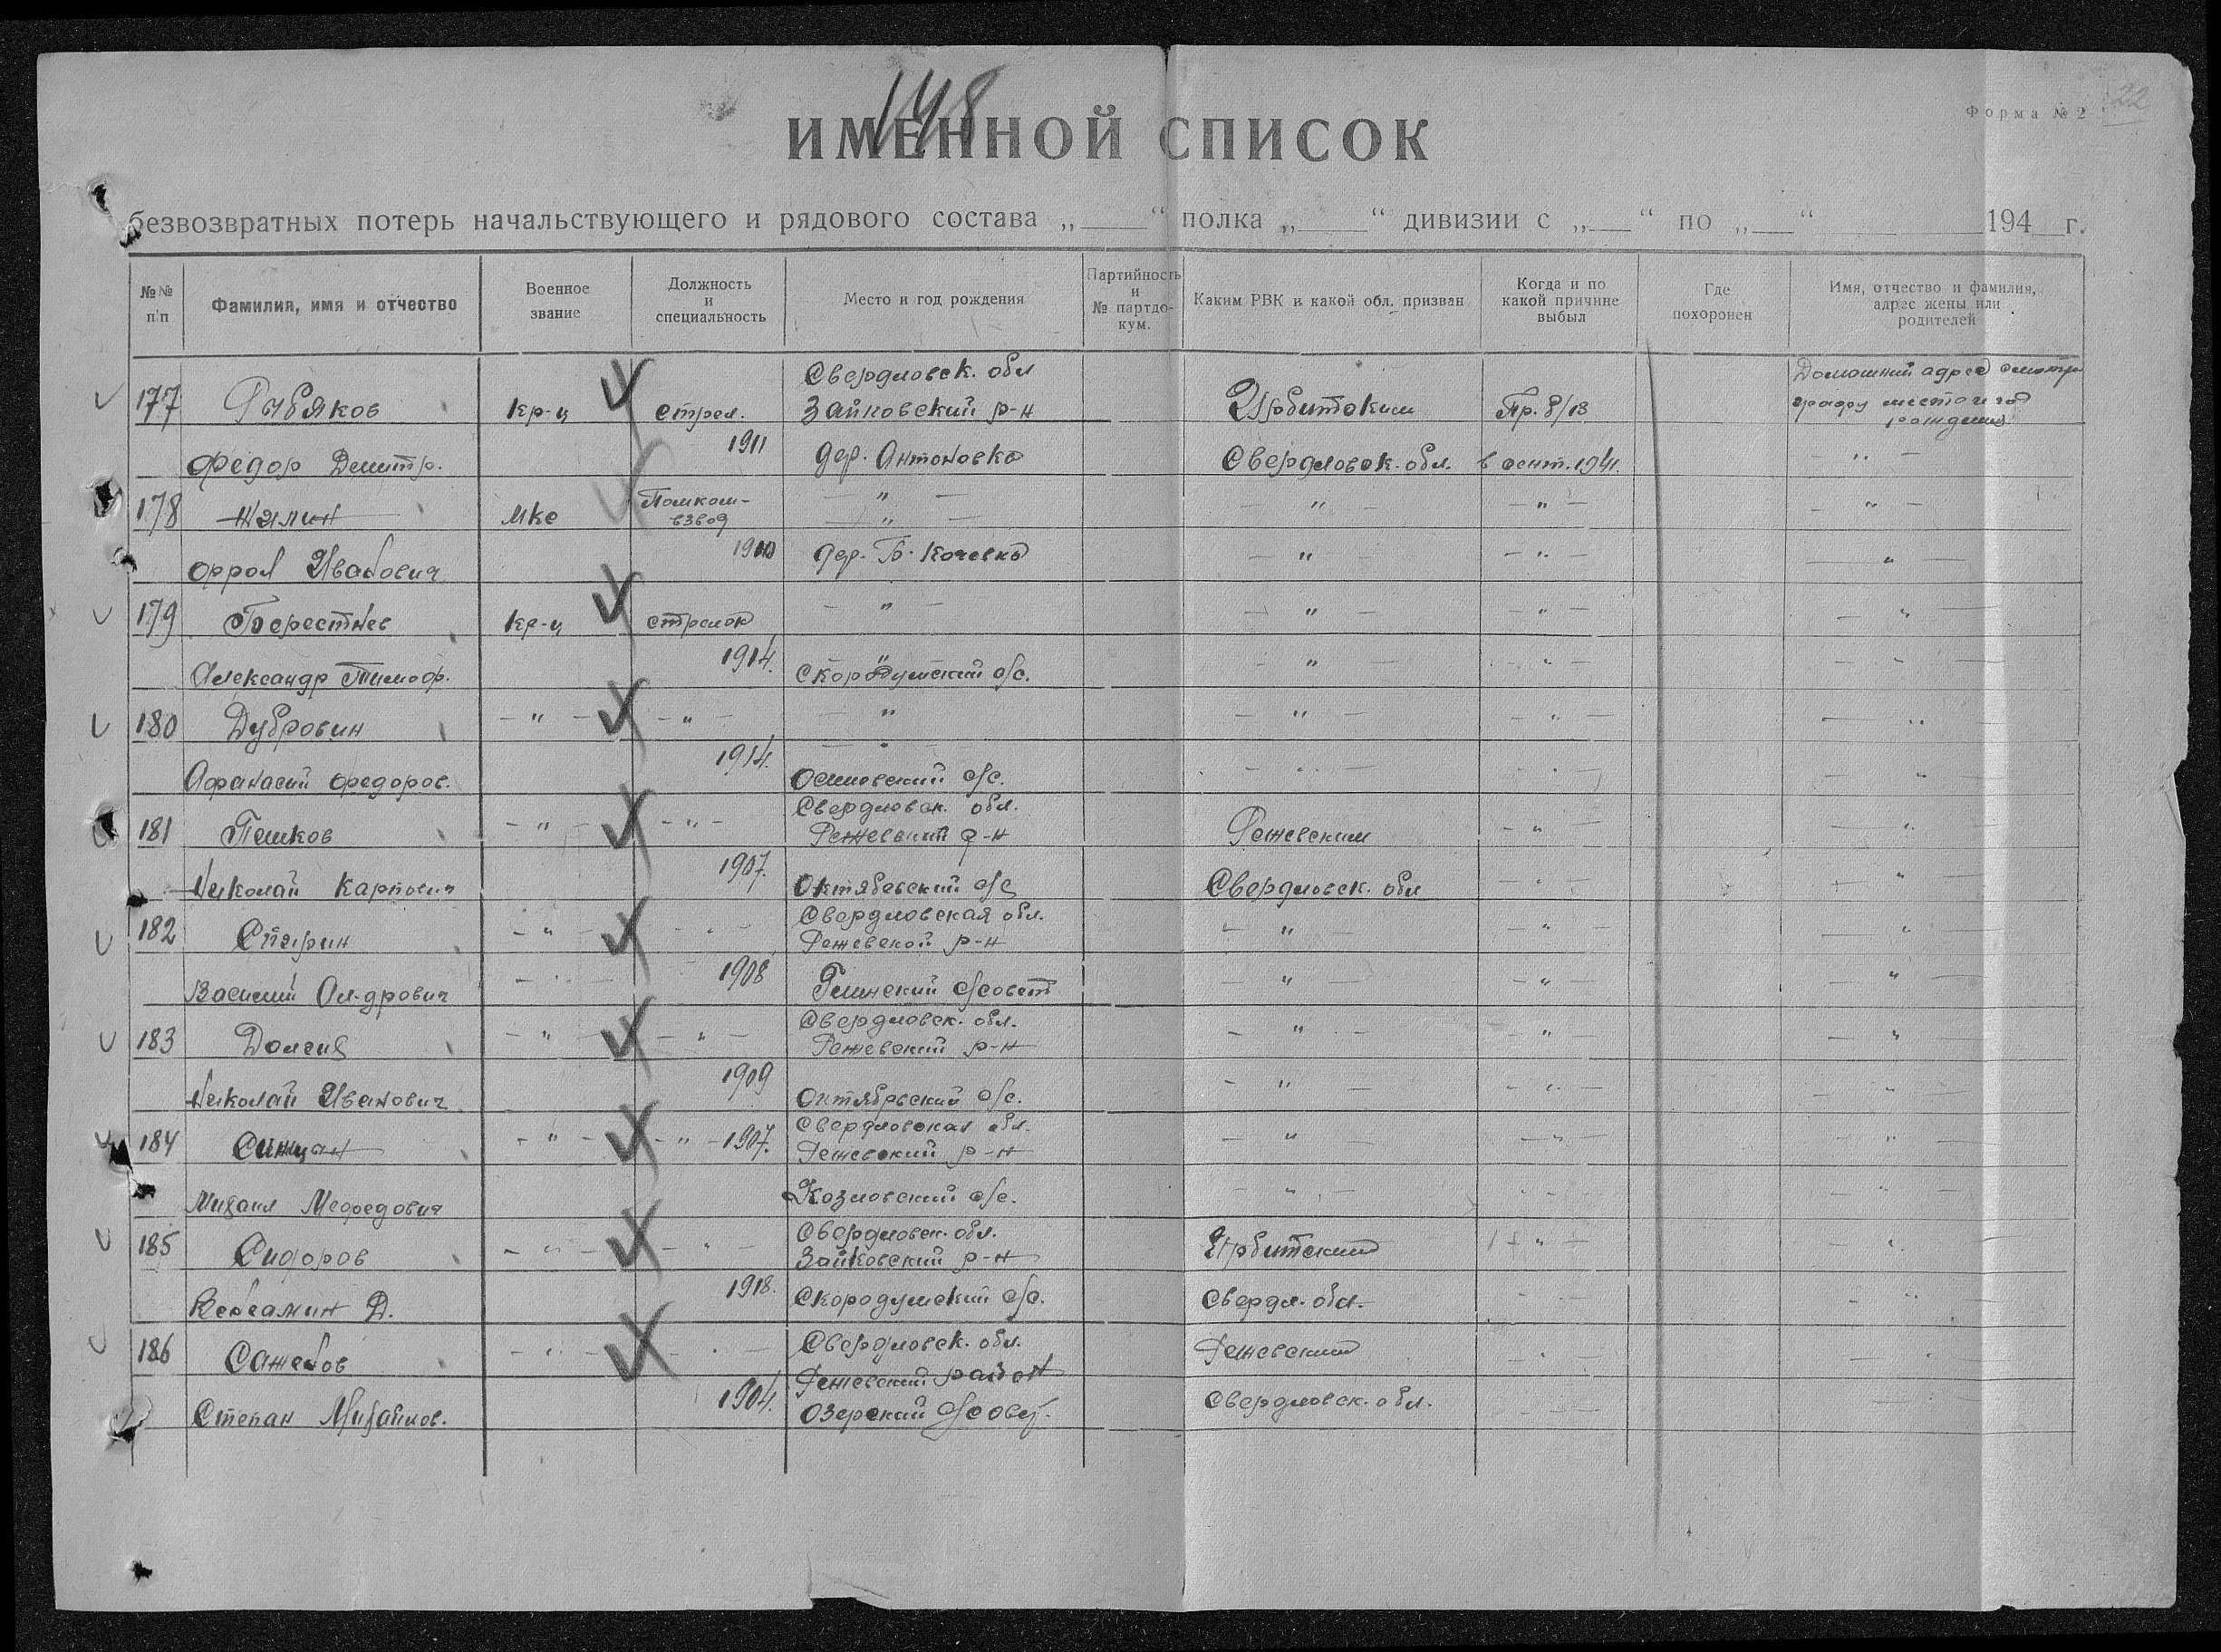 148
22
Форма № 2
ИМЕННОЙ СПИСОК
безвозвратных потерь начальствующего и рядового состава „____“ полка „____“ дивизии с „___“ по „___“ ________ 194__ г.
№№ п/п Фамилия, имя и отчество Военное звание Должность и специальность Место и год рождения Партийность и № партдокум. Каким РВК и какой обл. призван Когда и по какой причине выбыл Где похоронен Имя, отчество и фамилия, адрес жены или родителей
Свердловск. обл Домашний адрес смотри
177 Рыбяков кр-ц стрел. Зайковский р-н Ирбитским Пр. б/в графу место и год рождения
Федор Дмитр. 1911 дер. Антоновка Свердловск. обл. в сент. 1941. — " —
178 Жялин мкс Помком-взвод — " — — " — — " — — " —
Фрол Иванович 1910 дер. Б. Кочевка — " — — " — — " —
179 Берестнев кр-ц стрелок — " — — " — — " — — " —
Александр Тимоф. 1914. Скородумский с/с. — " — — " — — " —
180 Дубровин — " — — " — — " — — " — — " — — " —
Афанасий Федоров. 1914. Осиновский с/с. — " — — " — — " —
Свердловск. обл.
181 Пешков — " — — " — Режевский р-н Режевским — " — — " —
Николай Карпович 1907. Октябевский с/с Свердловск. обл — " — — " —
Свердловская обл.
182 Спирин — " — — " — Режевской р-н — " — — " — — " —
Василий Ал-дрович — " — 1908 Глинский с/совет — " — — " — — " —
Свердловск. обл.
183 — " — — " — Режевский р-н — " — — " — — " —
Николай Иванович 1909 Октябрьский с/с. — " — — " — — " —
Свердловская обл.
184 — " — — " — 1907. Режевский р-н — " — — " — — " —
Михаил Мефедович Козловский с/с. — " — — " — — " —
Свердловск. обл.
185 Сидоров — " — — " — Зайковский р-н Ирбитский — " — — " —
Вениамин Д. 1918. Скородумский с/с. Свердл. обл. — " — — " —
186 Саженов — " — — " — Свердловск. обл. Режевский — " — — " —
Режевский район
Степан Михайлов. 1904. Озерский с/совет. Свердловск. обл. — —